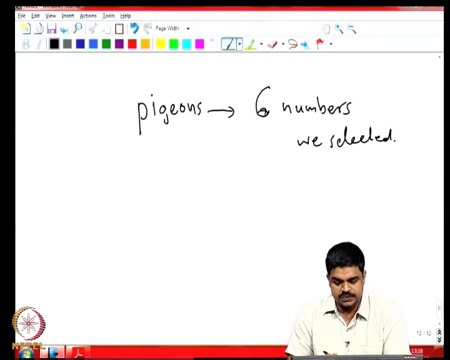 File Edit View Insert Actions Tools Help
Page Width
pigeons → 6 numbers
we selected.
12 / 12
13:18